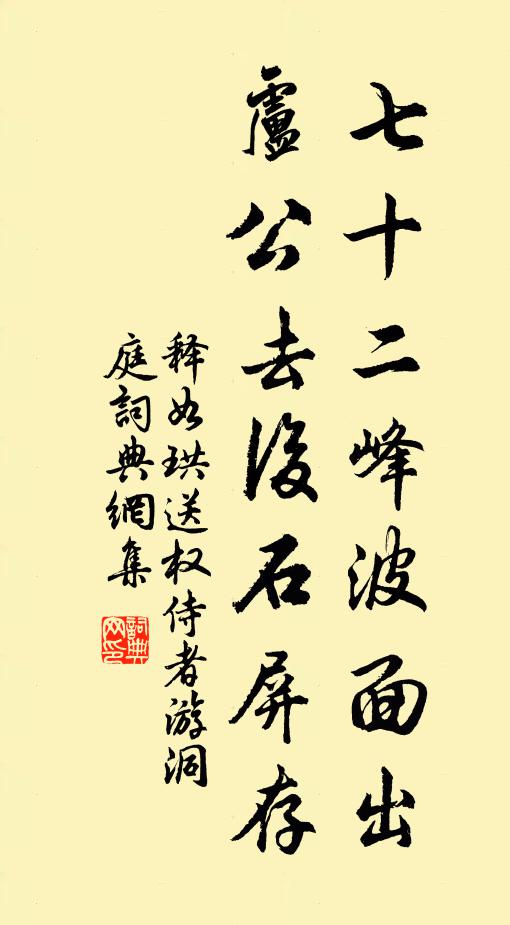 七十二峰波面出
盧公去後石屏存
释如珙送权侍者游洞
庭詞典網集
詞典网印